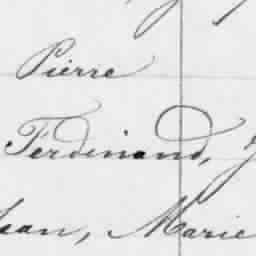 Pierre
Ferdinand,
Jean, Marie